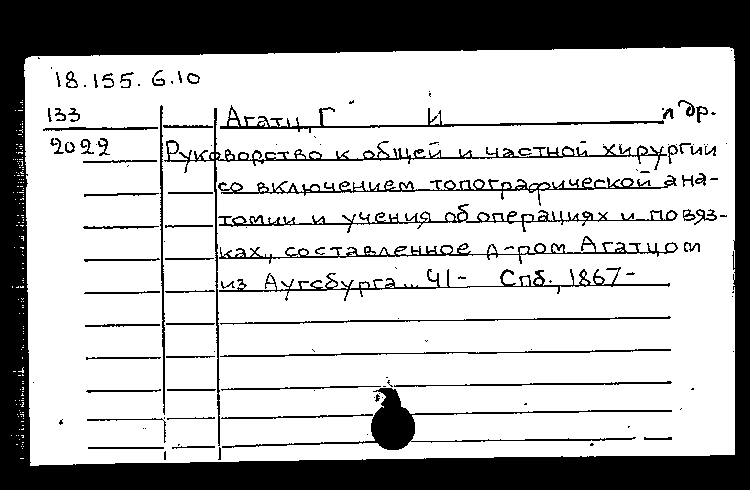 18.155.6.10
133 Агатц, Г И и др.
2022 Руководство к общей и частной хирургии
со включением топографической ана-
томии и учения об операциях и повяз-
ках, составленное д-ром Агатцом
из Аугсбурга... Ч1- Спб., 1867-